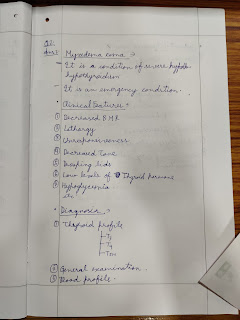 Q2.
Ans: Myxedema coma :-
- It is a condition of severe hypothyroidism
- It is an emergency condition.
• Clinical features :-
① Decreased BMR
② Lethargy
③ Unresponsiveness
④ Decreased Tone
⑤ Drooping lids
⑥ Low levels of Thyroid hormones
⑦ Hypoglycemia
etc
• Diagnosis :-
① Thyroid profile
T3
T4
TSH
② General examination.
③ Blood profile.